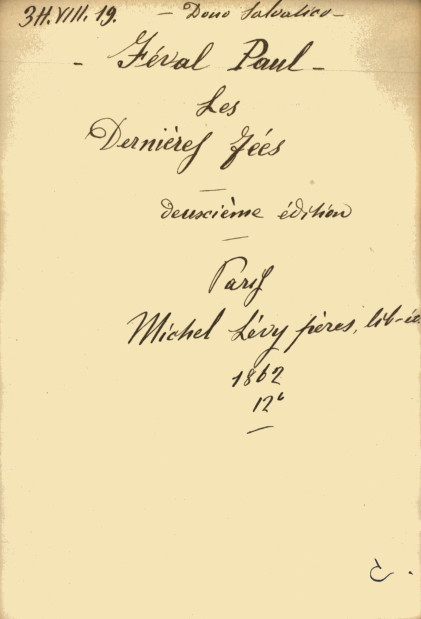 3H.VIII.19. — Dono Salvatico —
— Féval Paul —
Les
Dernières Fées
—
deuxième édition
—
Paris
Michel Lévy frères, lib-éd
1862
12°
—